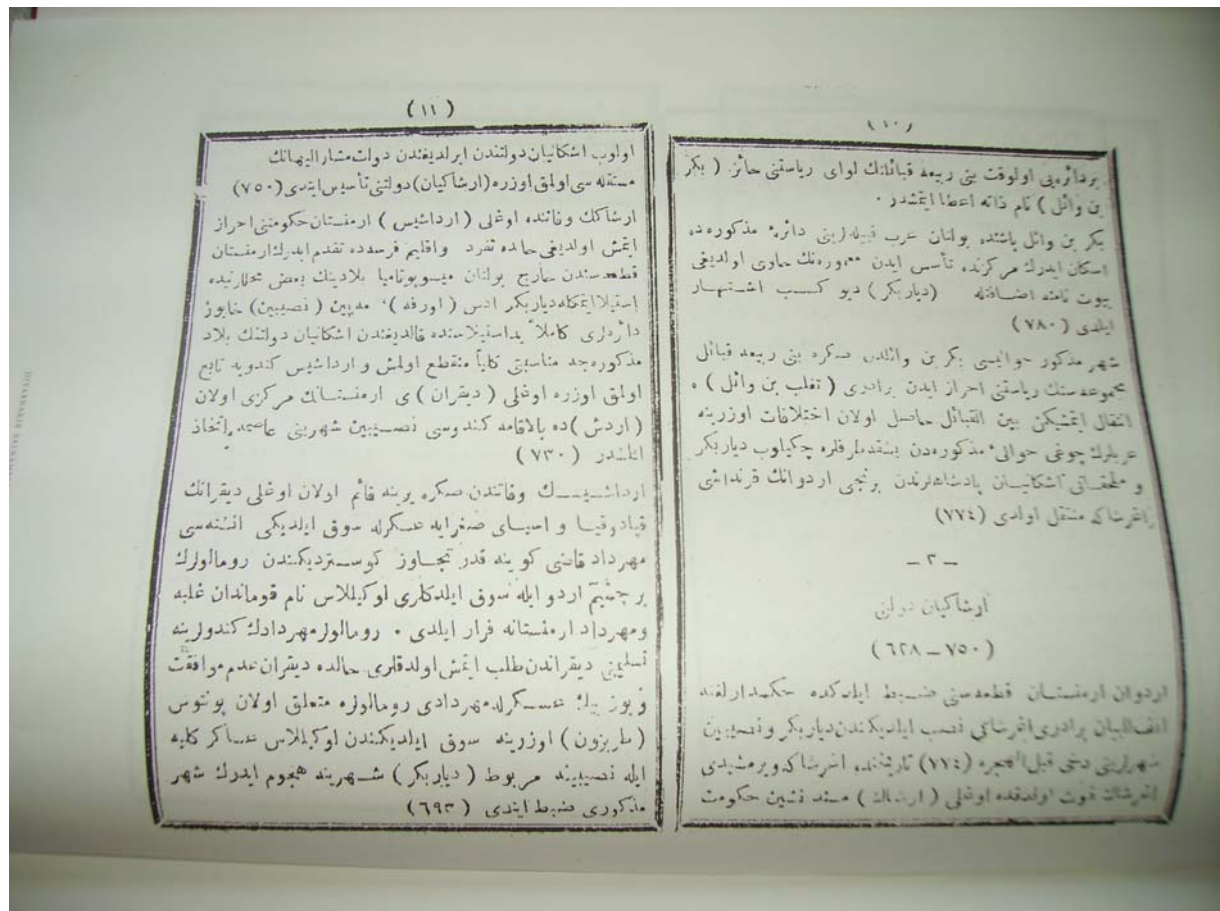 ( ١٠ )
بردائره یی اولوقت بنی ربیعه قبائلنك لوای ریاستنی حائز ( بكر
بن وائل ) نام ذاته اعطا ایتمشدر ٠
بكر بن وائل باشنده بولنان عرب قبیله لرینی دائرهٔ مذكوره ده
اسكان ایدرك مركزنده تأسیس ایدن معموره نك حاوی اولدیغی
بیوت نامنه اضافتله (دیاربكر ) دیو كسب اشتهار
ایلدی ( ٧٨٠ )
شهر مذكور حوالیسی بكر بن وائلدن صكره بنی ربیعه قبائل
مجموعه سنك ریاستنی احراز ایدن برادری ( تغلب بن وائل ) ه
انتقال ایتمشیكن بین القبائل حاصل اولان اختلافات اوزرینه
عربلرك چوغی حوالیٔ مذكوره دن بشقه طرفلره چكیلوب دیاربكر
و ملحقاتی اشكانیان پادشاهلرندن برنجی اردوانك قرنداشی
اغرشاكه منتقل اولدی (٧٧٤)
— ٣ —
ارشاكیان دولتی
( ٧٥٠ — ٦٢٨ )
اردوان ارمنستان قطعه سنی ضبط ایلدكده حكمدارلغنه
انف البیان برادری اغرشاكی نصب ایلدیكندن دیاربكر و نصیبین
شهرلرینی دخی قبل الهجره (٧٧٤) تاریخنده اغرشاكه ویرمشیدی
اغرشاك فوت اولدقده اوغلی ( ارشاك ) مسند نشین حكومت
( ١١ )
اولوب اشكانیان دولتندن ایرلدیغندن دولت مشار الیهانك
مستقله سی اولمق اوزره (ارشاكیان) دولتنی تأسیس ایتدی (٧٥٠)
ارشاكك وفاتنده اوغلی ( ارداشیس ) ارمنستان حكومتنی احراز
ایتمش اولدیغی حالده تفرد و اقلیم فرصده تقدم ایدرك ارمنستان
قطعه سندن خارج بولنان میسوپوتامیا بلادینك بعض محللرینه
استیلا ایتمكله دیاربكر ادس ( اورفه ) مدیین ( نصیبین ) خابوز
دائره لری كاملاً ید استیلاسنده قالدیغندن اشكانیان دولتنك بلاد
مذكوره جه مناسبتی كلیاً منقطع اولمش و ارداشیس كندویه تابع
اولمق اوزره اوغلی ( دیقران ) ی ارمنستانك مركزی اولان
( اردش ) ده بالاقامه كندوسی نصیبین شهرینی عاصمه اتخاذ
ایلشدر ( ٧٣٠ )
ارداشیسك وفاتندن صكره یرینه قائم اولان اوغلی دیقرانك
قپادوقیا و اسیای صغرایه عسكرله سوق ایلدیكی انشته سی
مهرداد قاضی كوینه قدر تجاوز كوستردیكندن رومالولرك
بر جسیم اردو ایله سوق ایلدكلری لوكیللاس نام قوماندان غلبه
ومهرداد ارمنستانه فرار ایلدی ٠ رومالولر مهردادك كندولرینه
تسلیمنی دیقراندن طلب ایتمش اولدقلری حالده دیقران عدم موافقت
و یوز بیك عسكرله مهردادی رومالولره متعلق اولان پونتوس
( طربزون ) اوزرینه سوق ایلدیكندن لوكیللاس عساكر كلیه
ایله نصیبینه مربوط ( دیاربكر ) شهرینه هجوم ایدرك شهر
مذكوری ضبط ایتدی ( ٦٩٣ )